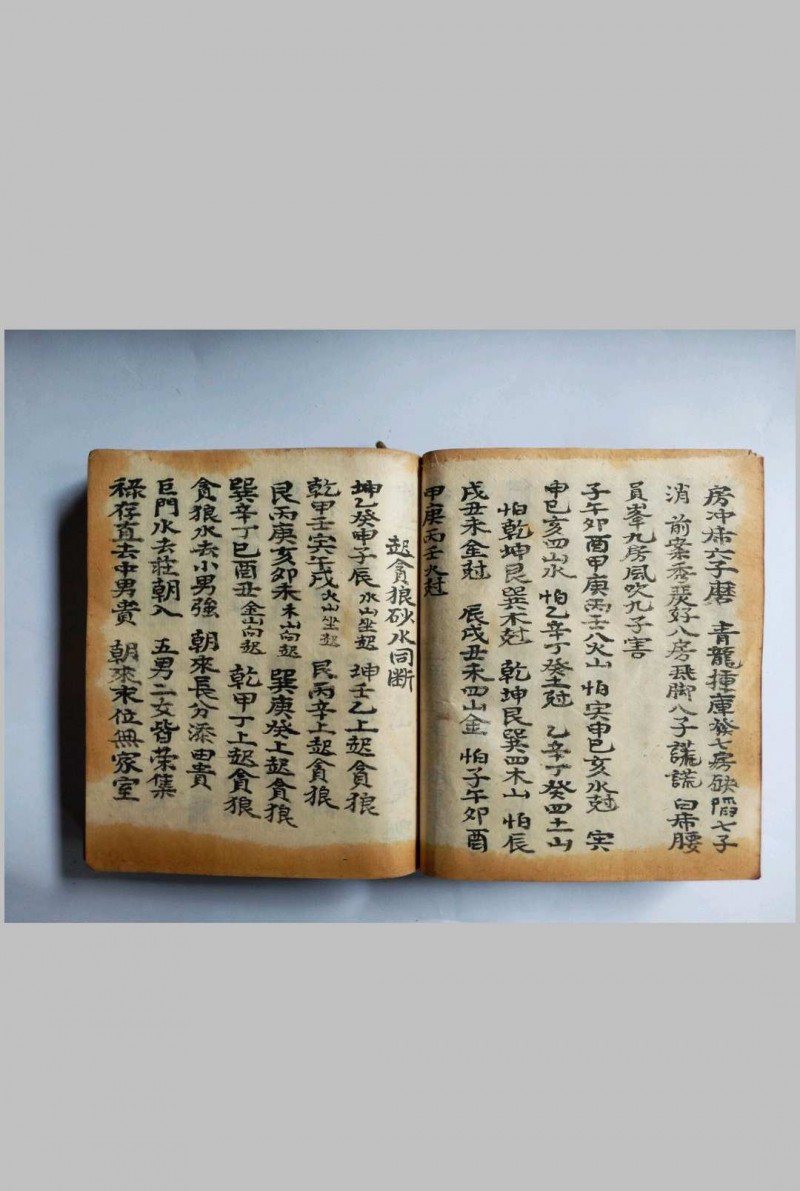 房冲㡳六子磨　青龍揰庫發七房缺陷七子
消　前案秀᠎好八房飛脚八子謊謊　白㡳腰
員峯九房風吹九子害
子午卯酉甲庚丙壬八火山　怕寅申巳亥水尅　寅
申巳亥四山水　怕乙辛丁癸土尅　乙辛丁癸四土山
怕乾坤艮巽木尅　乾坤艮巽四木山　怕辰
戌丑未金尅　辰戌丑未四山金　怕子午卯酉
甲庚丙壬火尅
起貪狼砂水同斷
坤乙癸申子辰水山坐起　坤壬乙上起貪狼
乾甲壬寅午戌火山坐起　艮丙辛上起貪狼
艮丙庚亥卯未木山向起　巽庚癸上起貪狼
巽辛丁巳酉丑金山向起　乾甲丁上起貪狼
貪狼水去小男強　朝來長分添田貴
巨門水去莊朝入　五男二女皆荣集
祿存直去中男貴　朝來末位無家室